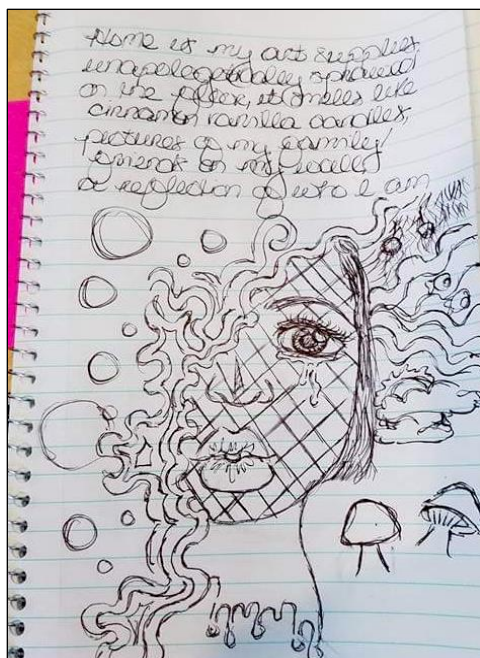 Home is my art supplies,
unapologetically sphawled
on the floor, it smells like
cinnamon vanilla candles,
pictures of my family/
friends on my walls
a reflection of who I am